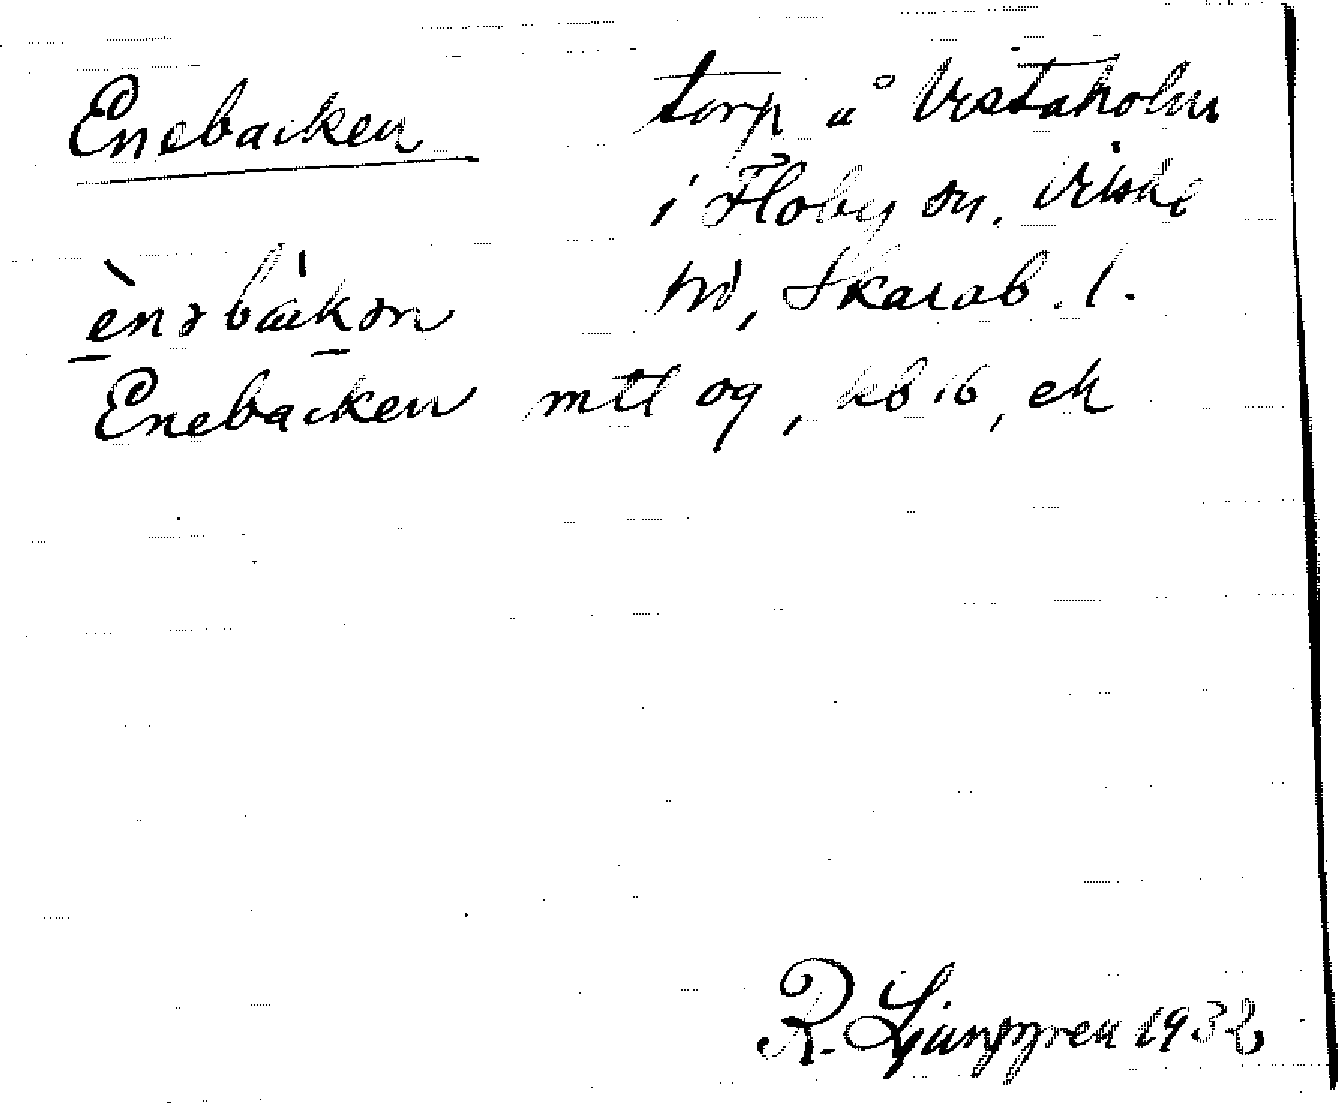 Enebacken torp å Vestaholm
i Floby sn. Vilske
hd, Skarab. l.
Enebacken mtl og, kb 16, ek
R. Ljunggren 1932